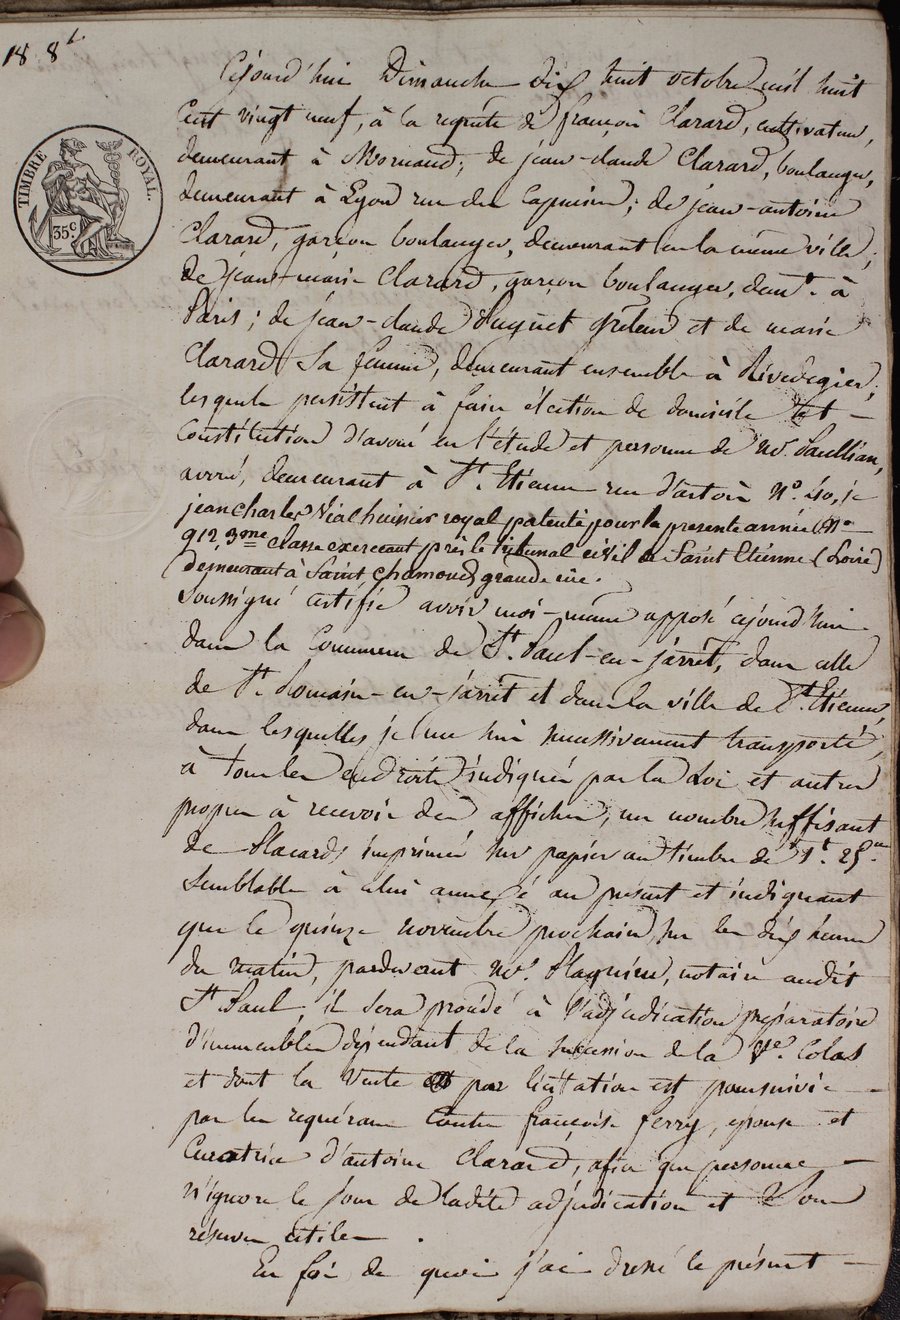 18 8
TIMBRE ROYAL.
35c
Cejourd'hui Dimanche dix huit octobre mil huit
Cent vingt neuf, à la requête de françois Clarard, cultivateur,
demeurant à Mornand; de jean-claude Clarard, boulanger,
demeurant à Lyon rue des Capucins; de jean-antoine
Clarard, garçon boulanger, demeurant en la même ville;
de jean-marie Clarard, garçon boulanger, demt. à
Paris; de jean-claude Huguet et de marie
Clarard Sa femme, demeurant ensemble à Rivedegier;
lesquels persistent à faire élection de domicile et
Constitution d'avoué en l'étude et personne de Me. Paullian,
avoué, demeurant à St. Etienne rue d'artois No. 40, je
jean charles Vial huissier royal patenté pour la presente année No.
912 3me Classe exercant près le tribunal civil de Saint Etienne (Loire)
demeurant à Saint Chamond grande rue.
Soussigné certifie avoir moi-même apposé cejourd'hui
dans la Commune de St. Paul-en-jarrêt, dans celle
de St. Romain-en-jarrêt et dans la ville de St. Etienne,
dans lesquelles je me suis successivement transporté,
à tous les endroits indiqués par la Loi et autres
propres à recevoir des affiches, un nombre suffisant
de Placards imprimés sur papier au timbre de
Semblable à celui annexé au présent et indiquant
que le quinze novembre prochain, sur les dix heures
du matin, pardevant Me. Flaquière, notaire audit
St. Paul, il sera procédé à l'adjudication préparatoire
d'immeubles dépendant de la succession de la Ve. Colas
et dont la Vente par licitation est poursuivie
par les requérans Contre françoise ferry, épouse et
Curatrice d'antoine Clarard, afin que personne
n'ignore le jour de ladite adjudication et Sous
réserves utiles.
En foi de quoi j'ai dressé le présent